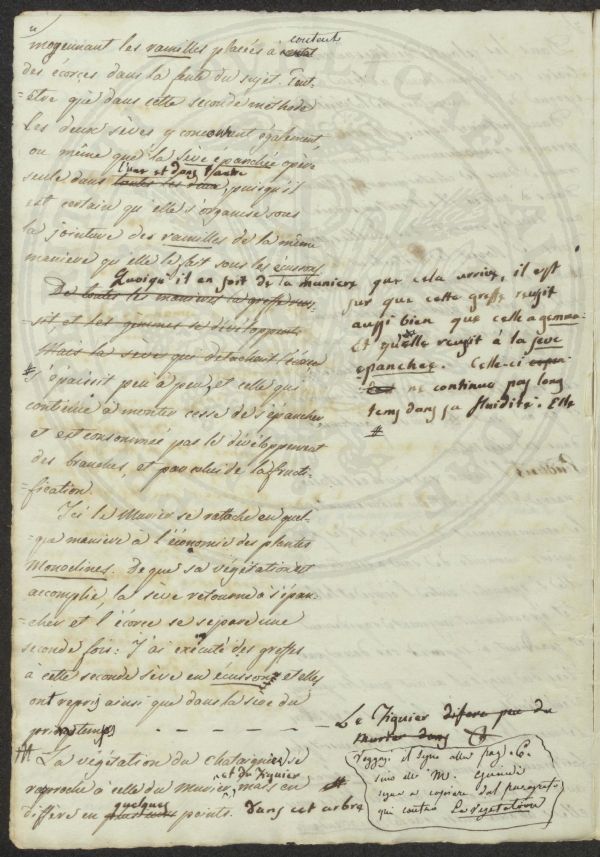 moyennant les ramilles placées à contact
content
des écorces dans la fente du sujet. Peut-
=etre que dans cette seconde méthode
les deux sèves y concourent également,
ou même que la sève épanchée opère
l'une et dans l'autre
seule dans toutes les deux, puisqu'il
est certain qu'elle s'organise sous
la jointure des ramilles de la même
maniere qu'elle le fait sous les écussons
Quoiqu'il en soit de la maniere
De toutes les manieres la greffe reus-
sit et les gemmes se développent
Mais la seve qui détachait l'écorce
# s'épaissit peu à peu, et celle qui
continue à monter cesse de s'épancher,
et est consommée par le développement
des branches, et par celui de la fructi-
fication.
Ici le Murier se ratache en quel-
=que maniere à l'économie des plantes
Monoclines. De que sa végétation est
accomplie la sève retourne à s'épan-
cher et l'écorce se sépare une
seconde fois. J'ai exécuté des greffes
à cette seconde sève en écusson et elles
ont repris ainsi que dans la sève du
printemps
La végétation du chataignier se
et du figuier
raproche à celle du murier, mais en
quelques
diffère en plusieurs points. Dans cet arbre
que cela arrive, il est
sur que cette greffe reusit
aussi bien que celle a gemme
et qu'elle reusit à la seve
epanchee. Celle-ci
ne continue pas long
tems dans sa fluidité. Elle
#
Le Figuier difere peu du
murier dans
Veggasi il segno alla pag. 6.
M.
segue a copiare dal paragrafo
qui contro La vegetation